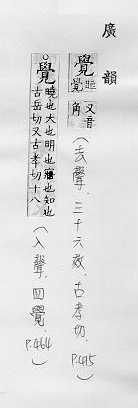 廣韻
覺 睡覺 又音角（去聲、三十六效、古孝切、P.415）
覺 曉也大也明也寤也知也古岳切又古孝切十八（入聲、四覺、P.464）